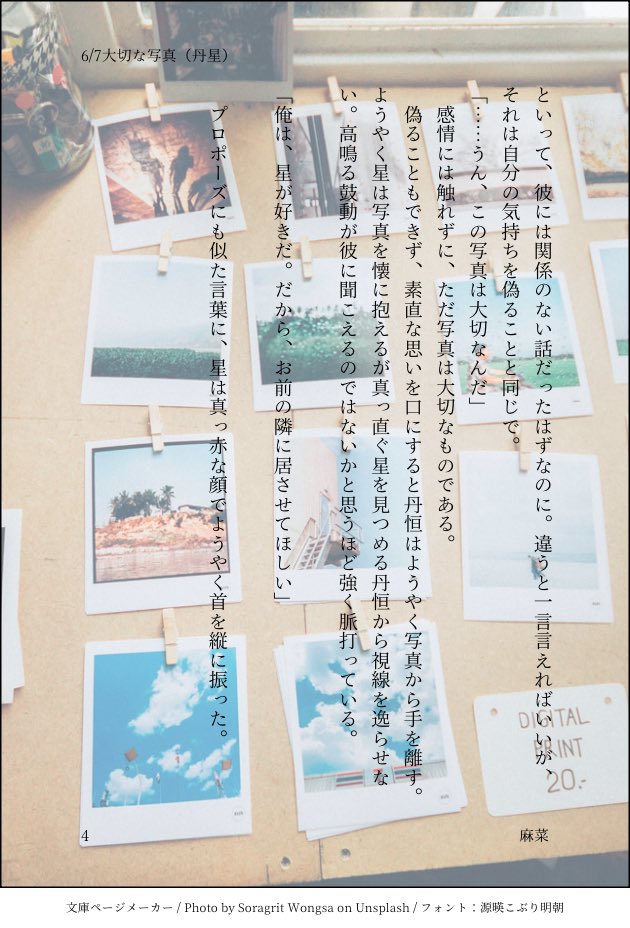 6/7大切な写真（丹星）
といって、彼には関係のない話だったはずなのに。違うと一言言えればいいが、
それは自分の気持ちを偽ることと同じで。
「……うん、この写真は大切なんだ」
感情には触れずに、ただ写真は大切なものである。
偽ることもできず、素直な思いを口にすると丹恒はようやく写真から手を離す。
ようやく星は写真を懐に抱えるが真っ直ぐ星を見つめる丹恒から視線を逸らせな
い。高鳴る鼓動が彼に聞こえるのではないかと思うほど強く脈打っている。
「俺は、星が好きだ。だから、お前の隣に居させてほしい」
プロポーズにも似た言葉に、星は真っ赤な顔でようやく首を縦に振った。
DIGITAL
PRINT
20.-
4
麻菜
文庫ページメーカー / Photo by Soragrit Wongsa on Unsplash / フォント：源暎こぶり明朝